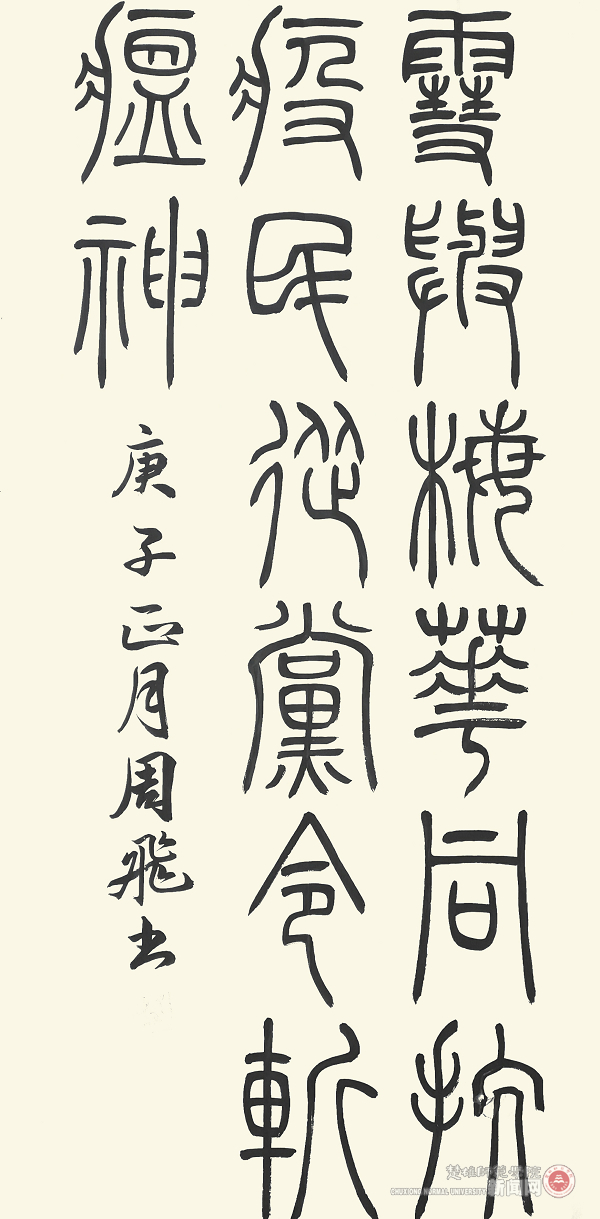 雪與梅華同抗
疫民從黨令斬
瘟神
庚子正月周飛书
楚雄師範學院
CHUXIONG NORMAL UNIVERSITY
新闻网